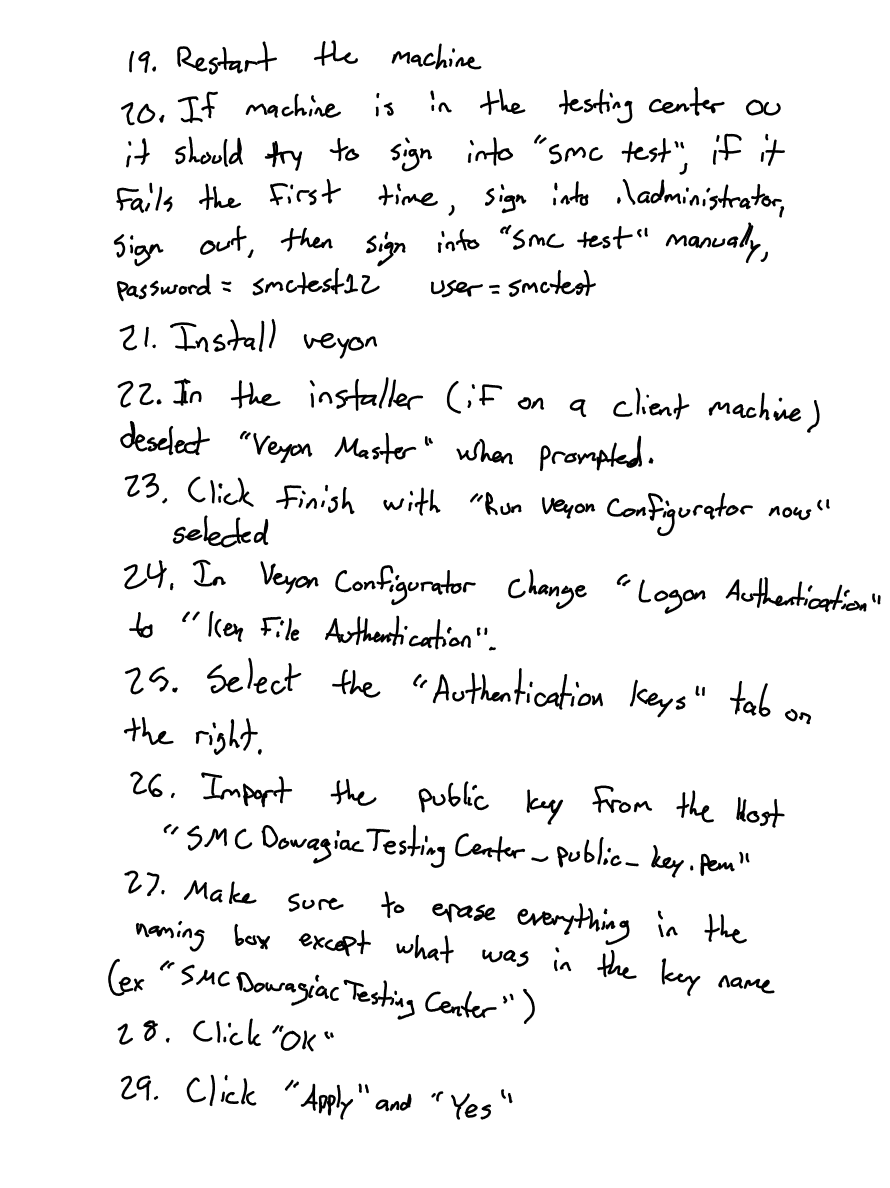 19. Restart the machine
20. If machine is in the testing center OU
it should try to sign into "smc test", if it
fails the first time, sign into .\administrator,
sign out, then sign into "smc test" manually,
password = smctest12 user = smctest
21. Install veyon
22. In the installer (if on a client machine)
deselect "Veyon Master" when prompted.
23. Click finish with "Run Veyon Configurator now"
selected
24. In Veyon Configurator change "Logon Authentication"
to "Key File Authentication".
25. Select the "Authentication keys" tab on
the right.
26. Import the public key from the Host
"SMC Dowagiac Testing Center_public_key.pem"
27. Make sure to erase everything in the
naming box except what was in the key name
(ex "SMC Dowagiac Testing Center")
28. Click "OK"
29. Click "Apply" and "Yes"